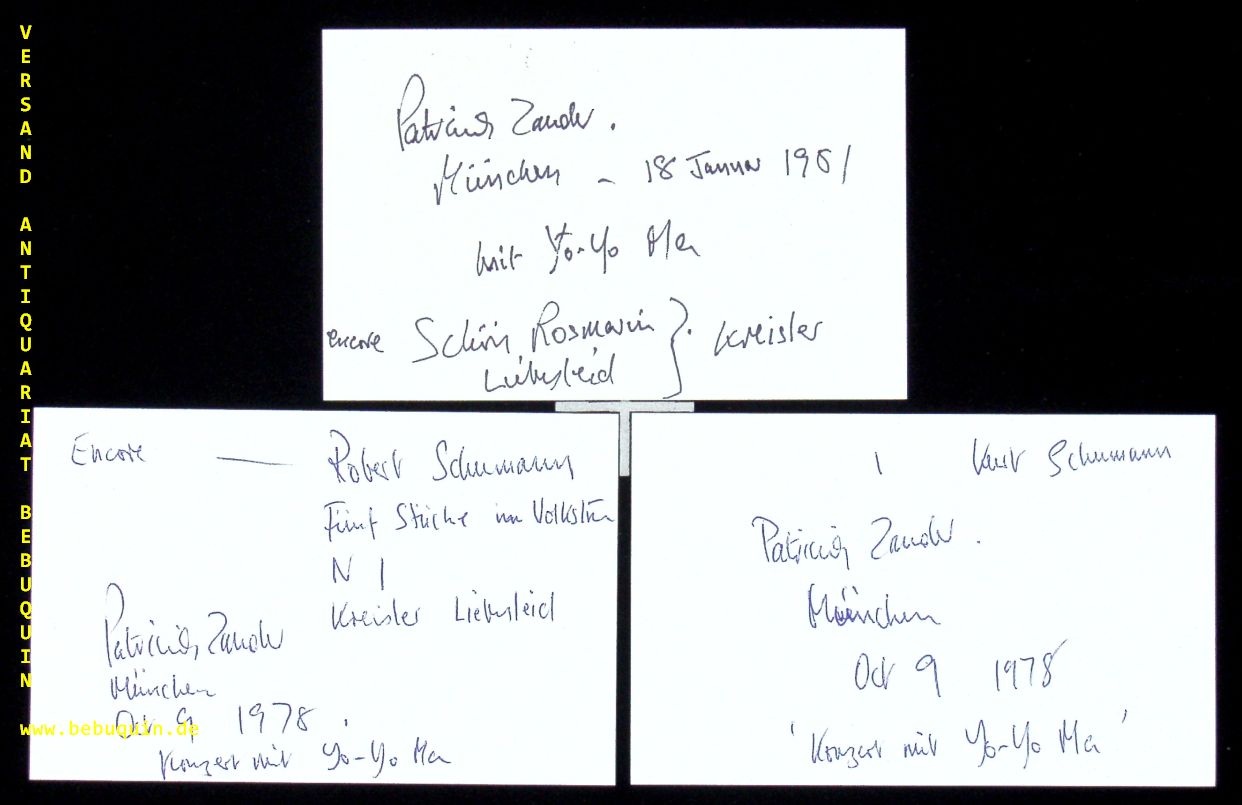 VERSAND ANTIQUARIAT BEBUQUIN
www.bebuquin.de
Patricia Zander.
München - 18 Januar 1981
mit Yo-Yo Ma
encore Schön Rosmarin } Kreisler
Liebesleid
Encore — Robert Schumann
Fünf Stücke im Volkston
N 1
Kreisler Liebesleid
Patricia Zander
München
Oct 9 1978.
Konzert mit Yo-Yo Ma
Schumann
Patricia Zander.
München
Oct 9 1978
'Konzert mit Yo-Yo Ma'